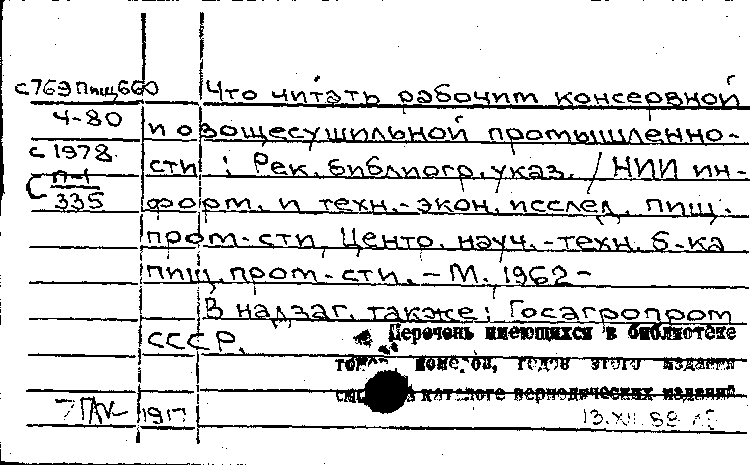 с769пищ660
Ч-80
с 1978
С п-1
335
Что читать рабочим консервной
и овощесушильной промышленно-
сти : Рек. библиогр. указ. / НИИ ин-
форм. и техн.-экон. исслед. пищ.
пром-сти, Центр. науч.-техн. б-ка
пищ. пром-сти. - М. 1962 -
В надзаг. также: Госагропром
СССР.
Перечень имеющихся в библиотеке
томов, номеров, годов этого издания
в каталоге периодических изданий
1917
13.XII.89